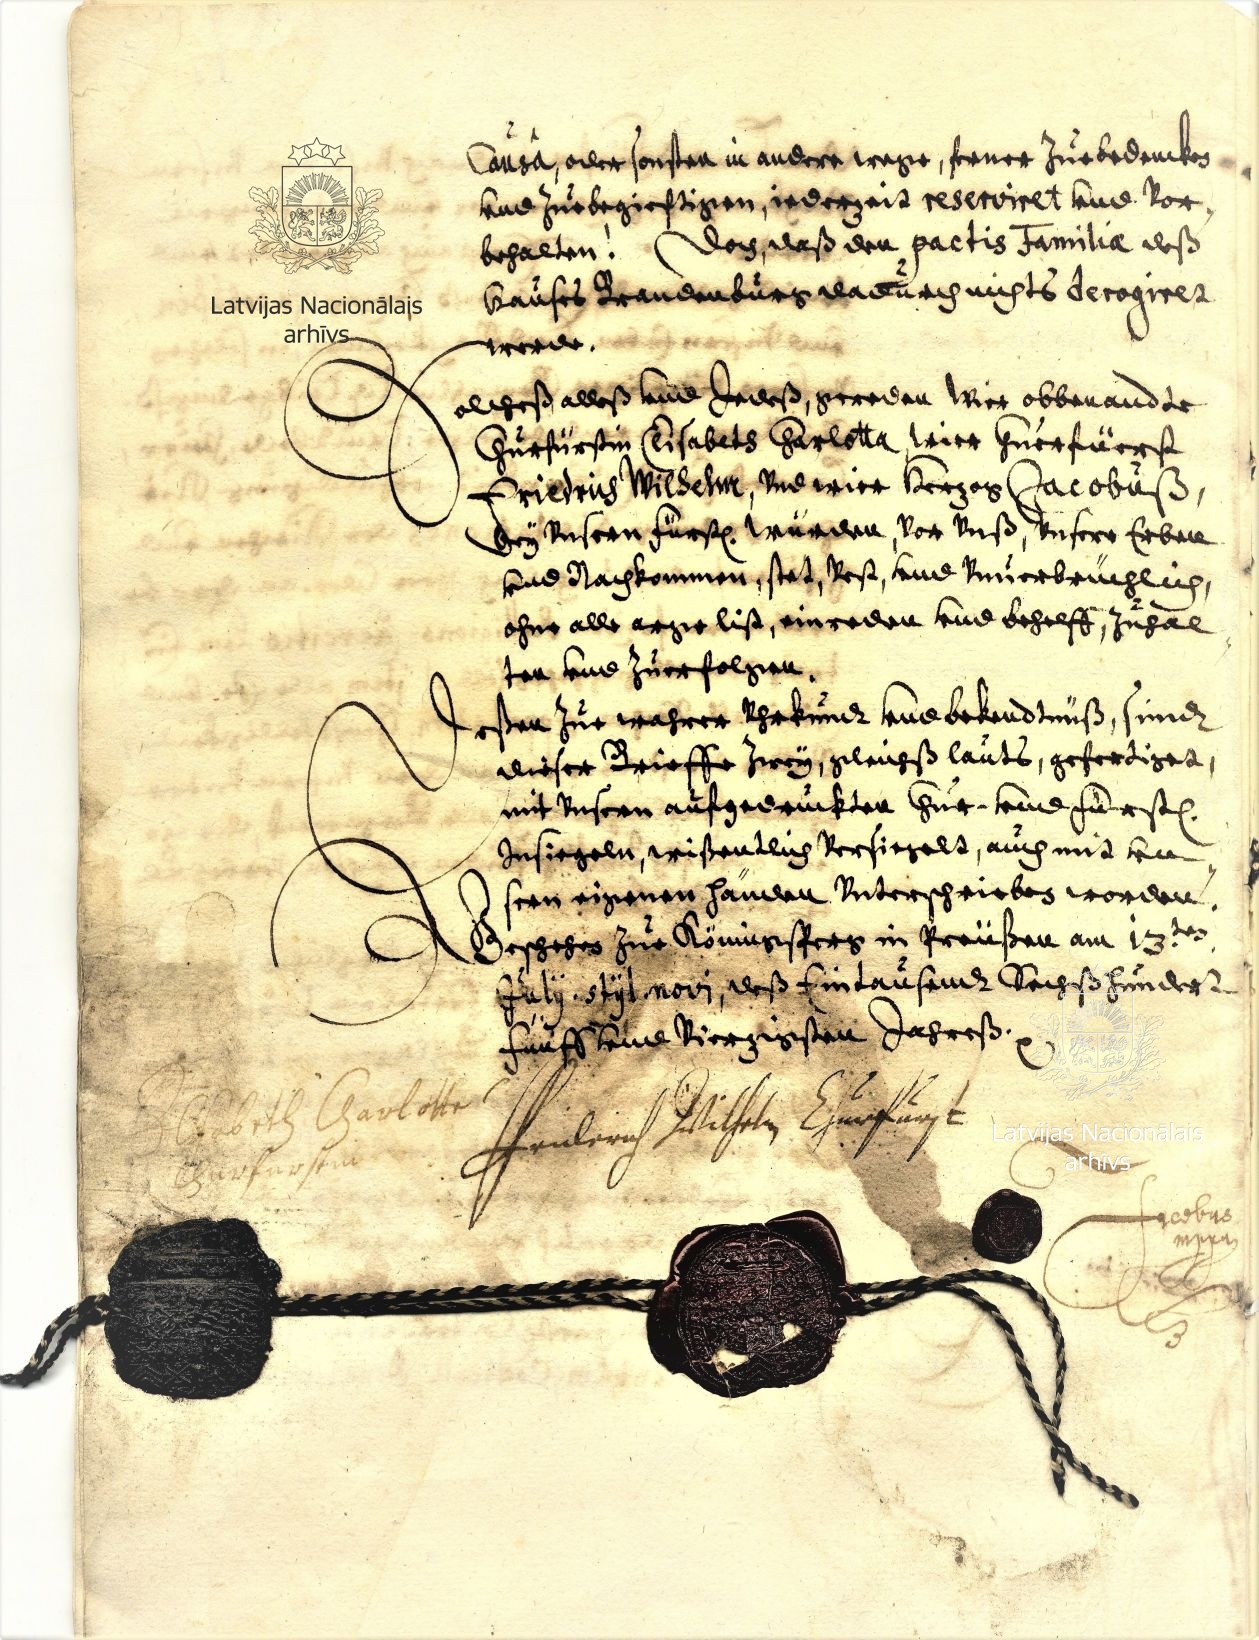 Causâ, oder sonsten in andere wege, ferner Zuebedencken
vnd Zuebegünstigen, iederzeit reserviret vnd Vor-
behalten! Doch, daß den pactis Familiæ deß
Hauses Brandenburg dadurch nichts derogiret
werde.
Solcheß alleß vnd Jedeß, gereden Wier obbenandte
Churfürstin Elisabeth Charlotta, wier Chuerfüerst
Friedrich Wilhelm, Vnd wier Herzog Jacobuß,
Bey Vnsern fürstl. Würden, Vor Vnß, Vnsere Erben
vnd Nachkommen, stet, Vest, vnd Vnverbrüchlich,
ohne alle arge list, einreden vnd behelff, Zuhal
ten vnd Zuerfolgen.
Dessen Zue wahrer Vhrkundt vnd bekendtnüß, sindt
dieser Brieffe Zwey, gleichß lauts, gefertiget,
mit Vnsern aufgedruckten Chur- vnd fürstl.
Insiegeln, wißentlich Versiegelt, auch mit vn-
sern eigenen händen Vnterschrieben worden.
Geschehen Zue Königsperg in Preüßen am 13ten.
July. styl. novi, deß Eintausendt Sechßhundert
fünff vnd Vierzigsten Jahreß.
Elisabeth Charlotte
Churfurstin
Friderich Wilhelm Churfürst
Jacobus
mppa
Latvijas Nacionālais
arhīvs
Latvijas Nacionālais
arhīvs